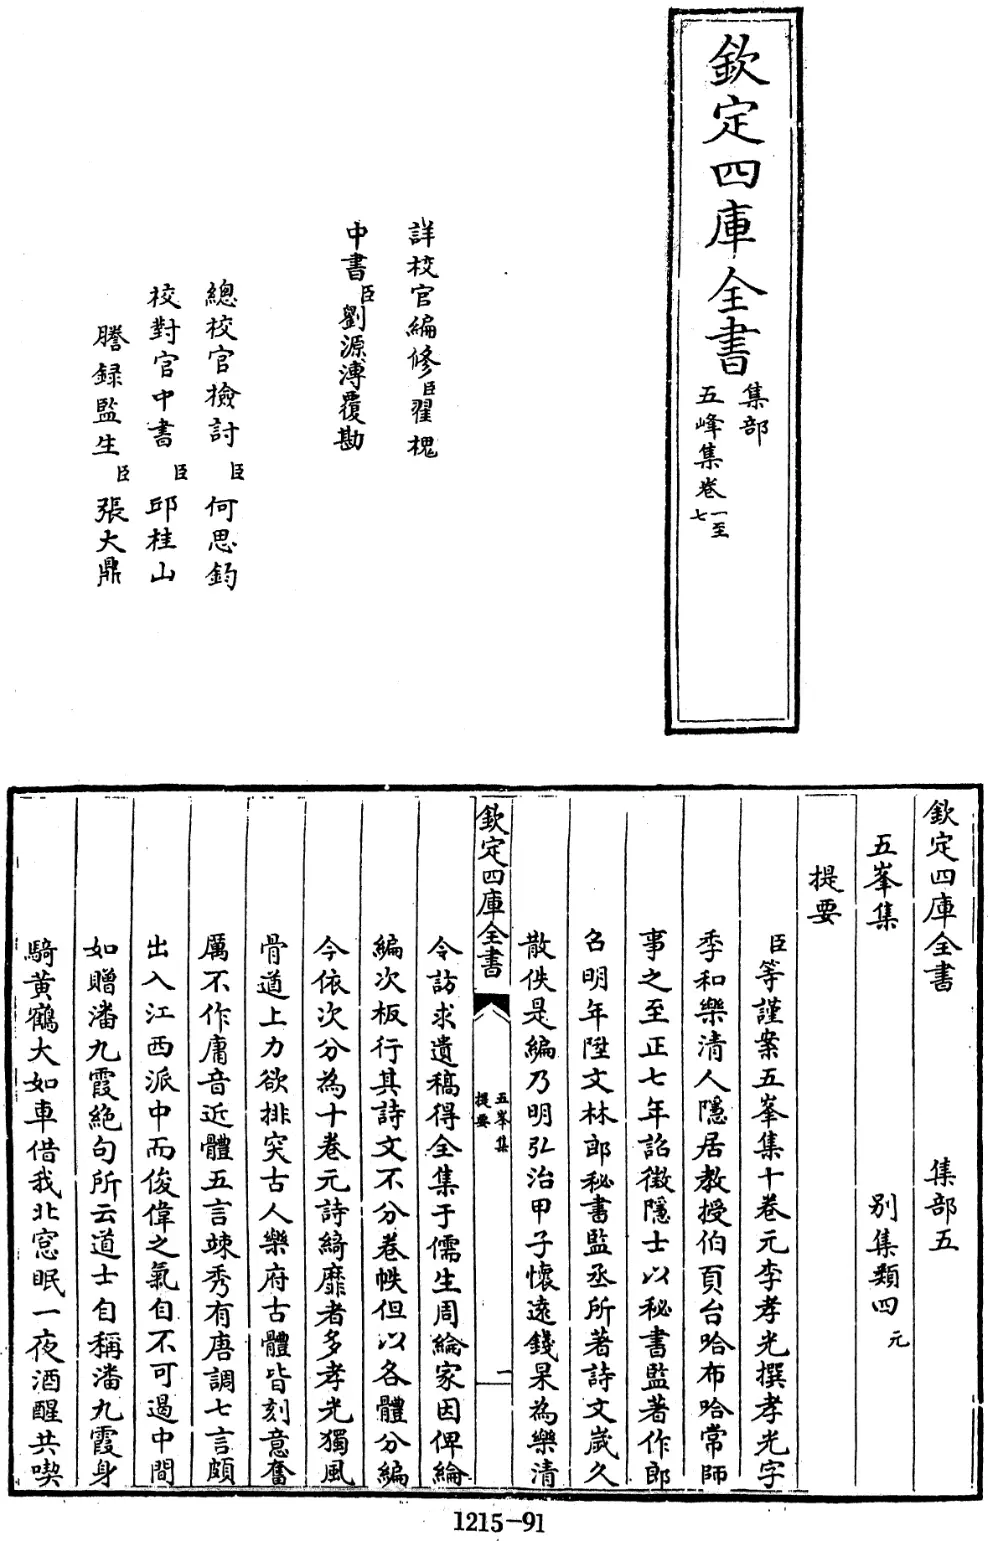 欽定四庫全書
集部
五峰集卷一至七
詳校官編修臣翟槐
中書臣劉源溥覆勘
總校官檢討臣何思鈞
校對官中書臣邱桂山
謄録監生臣張大鼎
欽定四庫全書 集部五
五峯集 别集類四元
提要
臣等謹案五峯集十卷元李孝光撰孝光字
季和樂清人隱居教授伯頁台哈布哈常師
事之至正七年詔徵隱士以秘書監著作郎
召明年陞文林郎秘書監丞所著詩文歲久
散佚是編乃明弘治甲子懷遠錢杲為樂清
欽定四庫全書 五峯集 提要 一
令訪求遺稿得全集于儒生周綸家因俾綸
編次板行其詩文不分卷帙但以各體分編
今依次分為十卷元詩綺靡者多孝光獨風
骨遒上力欲排突古人樂府古體皆刻意奮
厲不作庸音近體五言竦秀有唐調七言頗
出入江西派中而俊偉之氣自不可遏中間
如贈潘九霞絶句所云道士自稱潘九霞身
騎黃鶴大如車借我北窓眠一夜酒醒共喫
1215-91